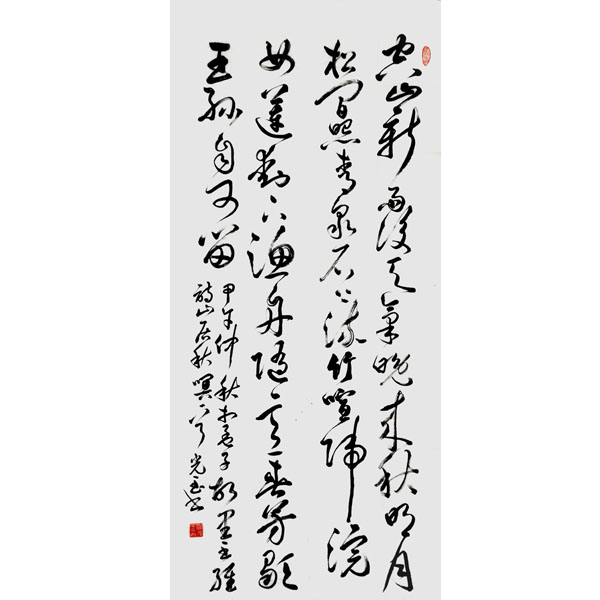 空山新雨後天氣晚来秋明月
松間照清泉石上流竹喧歸浣
女蓮動下漁舟随意春芳歇
王孫自可留
甲午仲秋於孟子故里王維
詩山居秋暝一首 光玉書